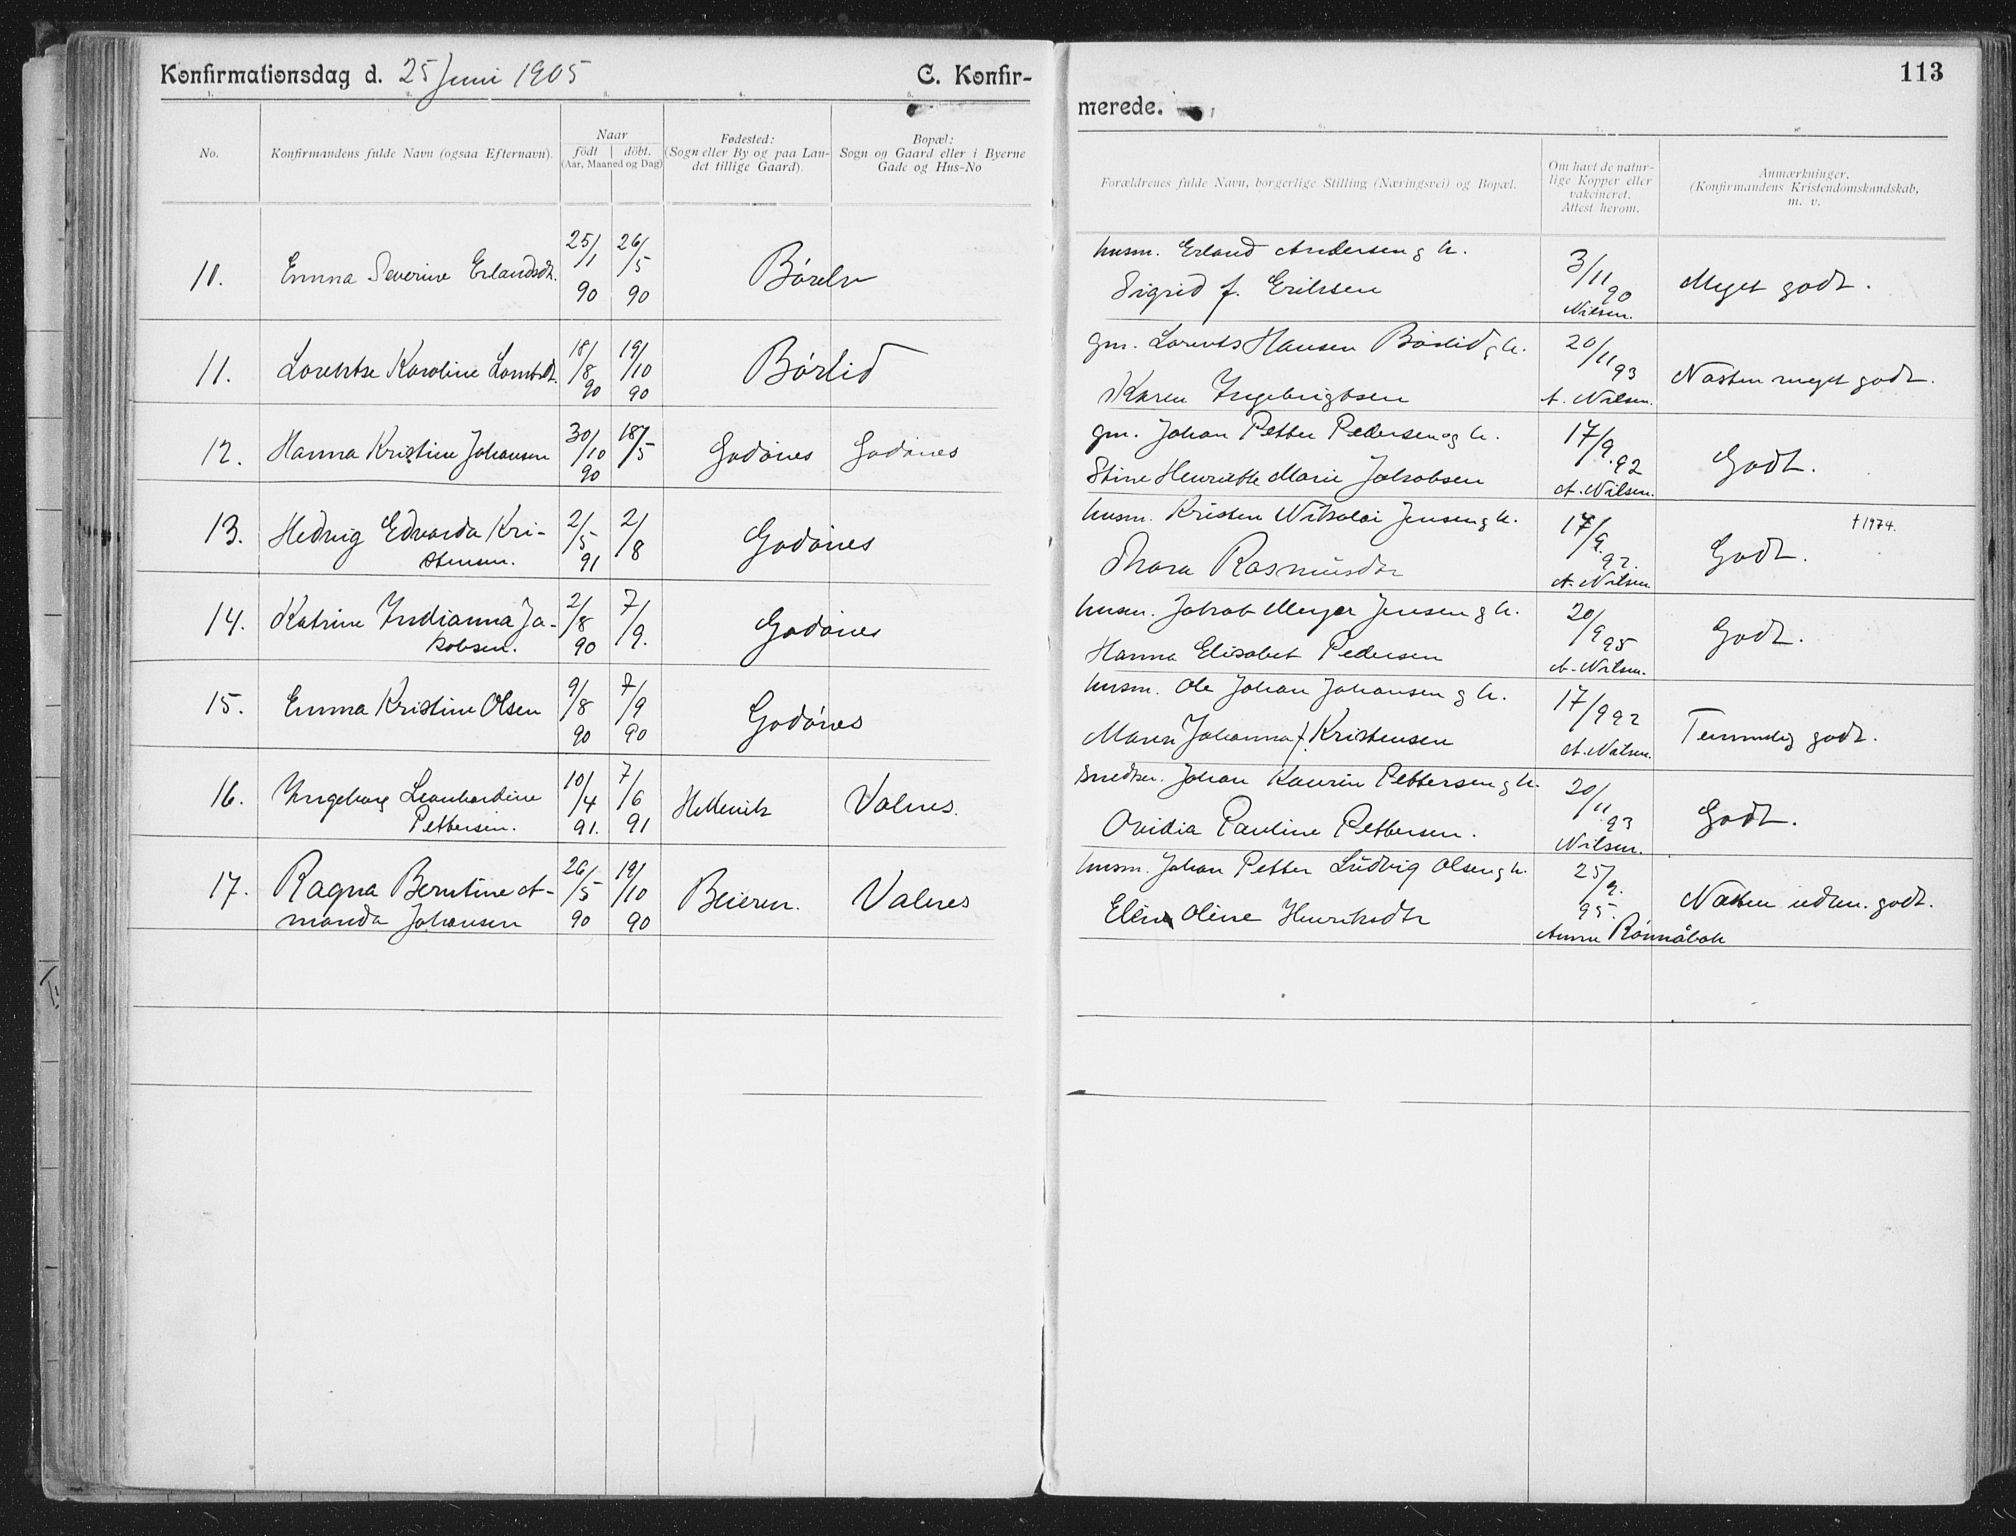 Konfirmationsdag d. 25 Juni 1905
C. Konfir-
1. 2. 3. 4. 5.
No.
Konfirmandens fulde Navn (ogsaa Efternavn).
Naar
født | döbt.
(Aar, Maaned og Dag)
Fødested:
(Sogn eller By og paa Lan-
det tillige Gaard).
Bopæl:
Sogn og Gaard eller i Byerne
Gade og Hus-No
10. Emma Severine Erlandsdt. 25/1 90 26/5 90 Börelv
11. Lorentse Karoline Lorntsdt. 18/8 90 19/10 90 Børlid
12. Hanna Kristine Johansen 30/10 90 18/5 Godönes Godönes
13. Hedvig Edvarda Kri-
stensen. 2/5 91 2/8 Godönes
14. Katrine Indianna Ja-
kobsen. 2/8 90 7/9. Godönes
15. Emma Kristine Olsen 9/8 90 7/9 90 Godönes
16. Ingeborg Leonhardine
Pettersen. 10/4 91. 7/6 91 Valnes.
17. Ragna Berntine A-
manda Johansen 26/5 90 19/10 90 Beieren. Valnes
113
merede.
6. 7. 8.
Forældrenes fulde Navn, borgerlige Stilling (Næringsvei) og Bopæl.
Om havt de natur-
lige Kopper eller
vakcineret.
Attest herom.
Anmærkninger.
(Konfirmandens Kristendomskundskab,
m. v.
husm. Erland Andersen og h.
Sigrid f. Eriksen
3/11 90
Nilsen.
Meget godt.
gm. Lorents Hansen Börlid og h.
Karen Ingebrigtsen
20/11 93
A. Nilsen.
Næsten meget godt.
gm. Johan Petter Pedersen og h.
Stine Henriette Marie Jakobsen
17/9. 92
A. Nilsen.
Godt.
husm. Kristen Nikolai Jensen og h.
Thora Rasmusdtr
17/9. 92.
A. Nilsen
Godt.
† 1974.
husm. Jakob Meyer Jensen og h.
Hanna Elisabet Pedersen
20/9 95
A. Nilsen.
Godt.
husm. Ole Johan Johansen og h.
Maren Johanna f. Kristensen
17/9 92
A. Nilsen.
Temmelig godt.
Johan Kaurin Pettersen og h.
Ovidia Pauline Pettersen.
20/11 93
Nilsen.
Godt.
husm. Johan Petter Ludvig Olsen og h.
Elen Oline Henriksdtr
25/9. 95.
Anne Rönnåbak
Næsten udm. godt.